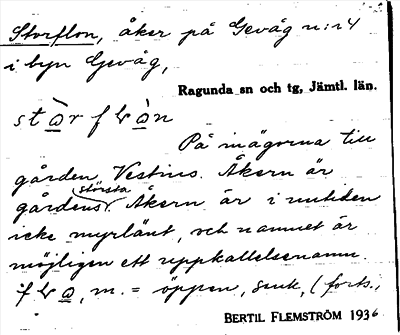 Storflon, åker på Gevåg n:r 4
i byn Gevåg,
Ragunda sn och tg, Jämtl. län.
På mägorna till
gården Vestins. Åkern är
största
gårdens. Åkern är i nutiden
icke myrlänt, och namnet är
möjligen ett uppkallelsenamn.
m. = öppen, sank, (forts.,
BERTIL FLEMSTRÖM 1936